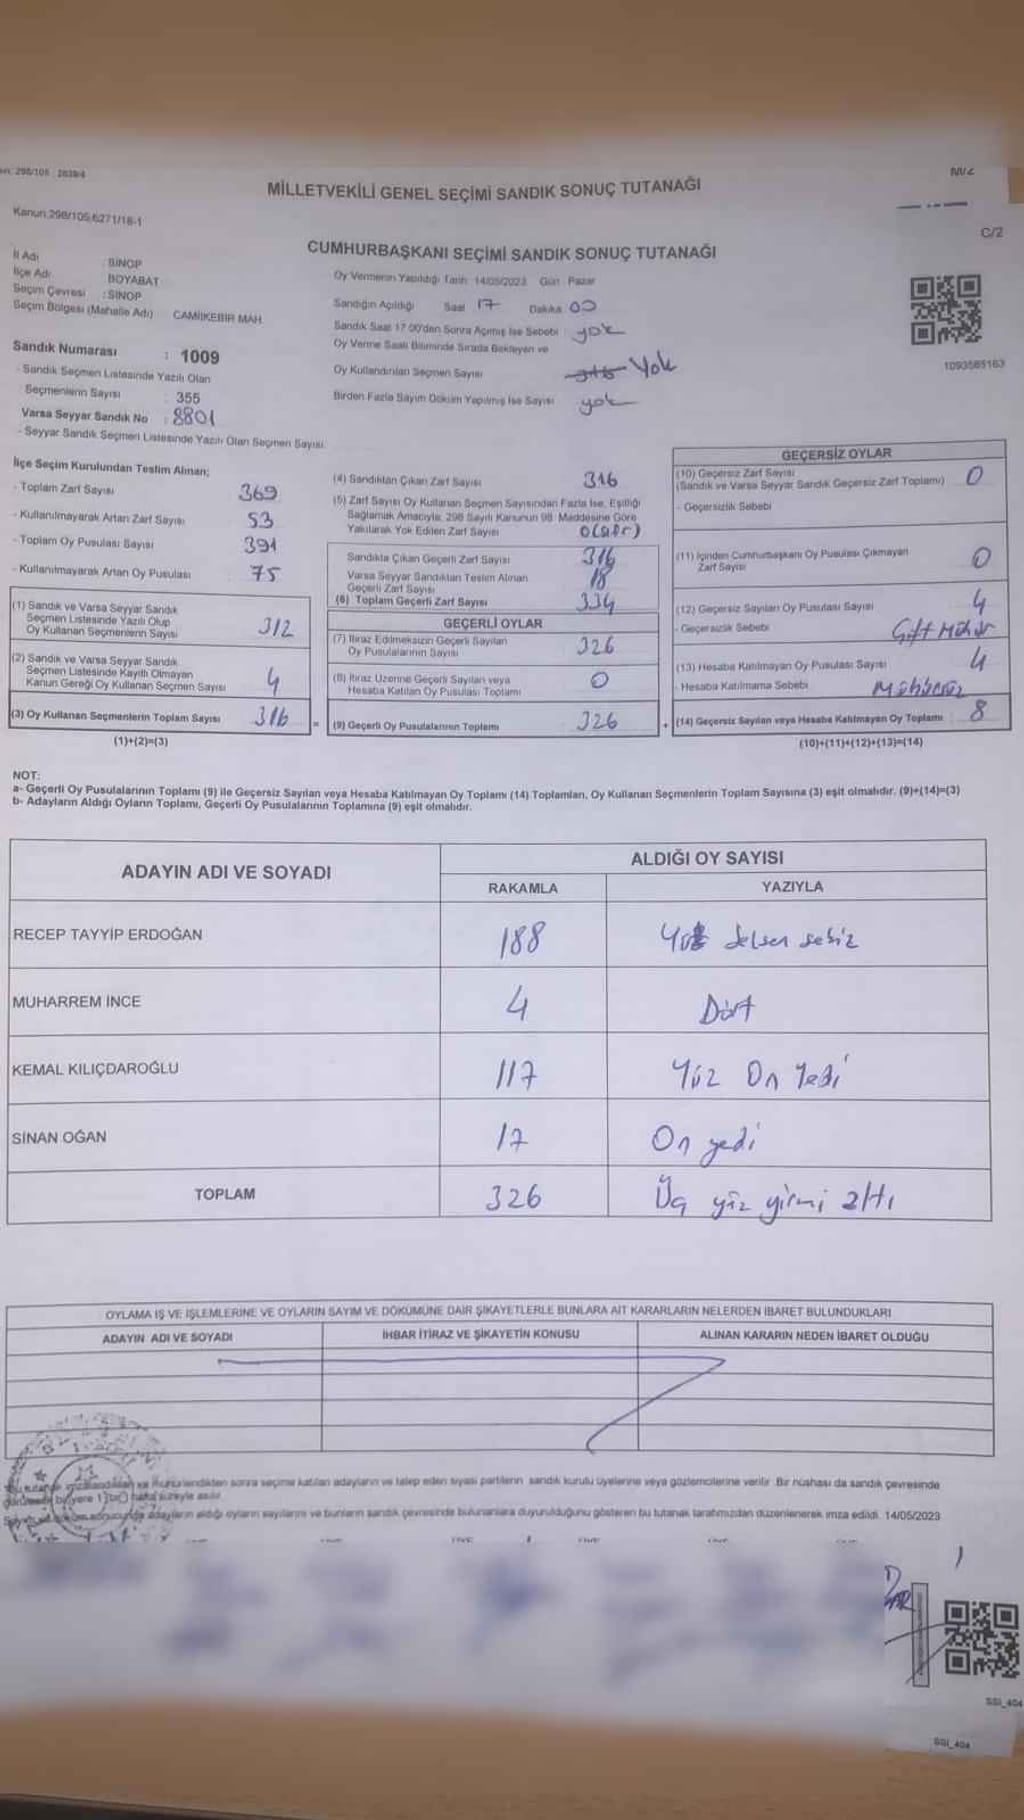 MİLLETVEKİLİ GENEL SEÇİMİ SANDIK SONUÇ TUTANAĞI
Kanun:298/105;6271/18-1
C/2
CUMHURBAŞKANI SEÇİMİ SANDIK SONUÇ TUTANAĞI
İl Adı : SİNOP
İlçe Adı : BOYABAT
Seçim Çevresi : SİNOP
Seçim Bölgesi (Mahalle Adı) CAMİİKEBİR MAH.
Sandık Numarası : 1009
- Sandık Seçmen Listesinde Yazılı Olan
Seçmenlerin Sayısı : 355
Varsa Seyyar Sandık No : 8801
- Seyyar Sandık Seçmen Listesinde Yazılı Olan Seçmen Sayısı
Oy Vermenin Yapıldığı Tarih: 14/05/2023 Gün: Pazar
Sandığın Açıldığı Saat 17 Dakika 00
Sandık Saat 17.00'den Sonra Açılmış İse Sebebi : yok
Oy Verme Saati Bitiminde Sırada Bekleyen ve
Oy Kullandırılan Seçmen Sayısı Yok
Birden Fazla Sayım Döküm Yapılmış İse Sayısı yok
1093565163
İlçe Seçim Kurulundan Teslim Alınan;
- Toplam Zarf Sayısı 369
- Kullanılmayarak Artan Zarf Sayısı 53
- Toplam Oy Pusulası Sayısı 391
- Kullanılmayarak Artan Oy Pusulası 75
(1) Sandık ve Varsa Seyyar Sandık
Seçmen Listesinde Yazılı Olup
Oy Kullanan Seçmenlerin Sayısı 312
(2) Sandık ve Varsa Seyyar Sandık
Seçmen Listesinde Kayıtlı Olmayan
Kanun Gereği Oy Kullanan Seçmen Sayısı 4
(3) Oy Kullanan Seçmenlerin Toplam Sayısı 316
(1)+(2)=(3)
(4) Sandıktan Çıkan Zarf Sayısı 316
(5) Zarf Sayısı Oy Kullanan Seçmen Sayısından Fazla İse, Eşitliği
Sağlamak Amacıyla; 298 Sayılı Kanunun 98. Maddesine Göre
Yakılarak Yok Edilen Zarf Sayısı 0(sıfır)
Sandıkta Çıkan Geçerli Zarf Sayısı 316
Varsa Seyyar Sandıktan Teslim Alınan
Geçerli Zarf Sayısı 18
(6) Toplam Geçerli Zarf Sayısı 334
GEÇERLİ OYLAR
(7) İtiraz Edilmeksizin Geçerli Sayılan
Oy Pusulalarının Sayısı 326
(8) İtiraz Üzerine Geçerli Sayılan veya
Hesaba Katılan Oy Pusulası Toplamı 0
= (9) Geçerli Oy Pusulalarının Toplamı 326
GEÇERSİZ OYLAR
(10) Geçersiz Zarf Sayısı
(Sandık ve Varsa Seyyar Sandık Geçersiz Zarf Toplamı) 0
- Geçersizlik Sebebi
(11) İçinden Cumhurbaşkanı Oy Pusulası Çıkmayan
Zarf Sayısı 0
(12) Geçersiz Sayılan Oy Pusulası Sayısı 4
- Geçersizlik Sebebi Çift Mühür
(13) Hesaba Katılmayan Oy Pusulası Sayısı 4
- Hesaba Katılmama Sebebi Mühürsüz
+ (14) Geçersiz Sayılan veya Hesaba Katılmayan Oy Toplamı 8
(10)+(11)+(12)+(13)=(14)
NOT:
a- Geçerli Oy Pusulalarının Toplamı (9) ile Geçersiz Sayılan veya Hesaba Katılmayan Oy Toplamı (14) Toplamları, Oy Kullanan Seçmenlerin Toplam Sayısına (3) eşit olmalıdır. (9)+(14)=(3)
b- Adayların Aldığı Oyların Toplamı, Geçerli Oy Pusulalarının Toplamına (9) eşit olmalıdır.
ADAYIN ADI VE SOYADI ALDIĞI OY SAYISI
RAKAMLA YAZIYLA
RECEP TAYYİP ERDOĞAN 188 Yüz Seksen sekiz
MUHARREM İNCE 4 Dört
KEMAL KILIÇDAROĞLU 117 Yüz On Yedi
SİNAN OĞAN 17 On yedi
TOPLAM 326 Üç yüz yirmi altı
OYLAMA İŞ VE İŞLEMLERİNE VE OYLARIN SAYIM VE DÖKÜMÜNE DAİR ŞİKAYETLERLE BUNLARA AİT KARARLARIN NELERDEN İBARET BULUNDUKLARI
ADAYIN ADI VE SOYADI İHBAR İTİRAZ VE ŞİKAYETİN KONUSU ALINAN KARARIN NEDEN İBARET OLDUĞU
sonra seçime katılan adayların ve talep eden siyasi partilerin sandık kurulu üyelerine veya gözlemcilerine verilir. Bir nüshası da sandık çevresinde
adayların aldığı oyların sayılarını ve bunların sandık çevresinde bulunanlara duyurulduğunu gösteren bu tutanak tarafımızdan düzenlenerek imza edildi. 14/05/2023
SSI_404
SSI_404